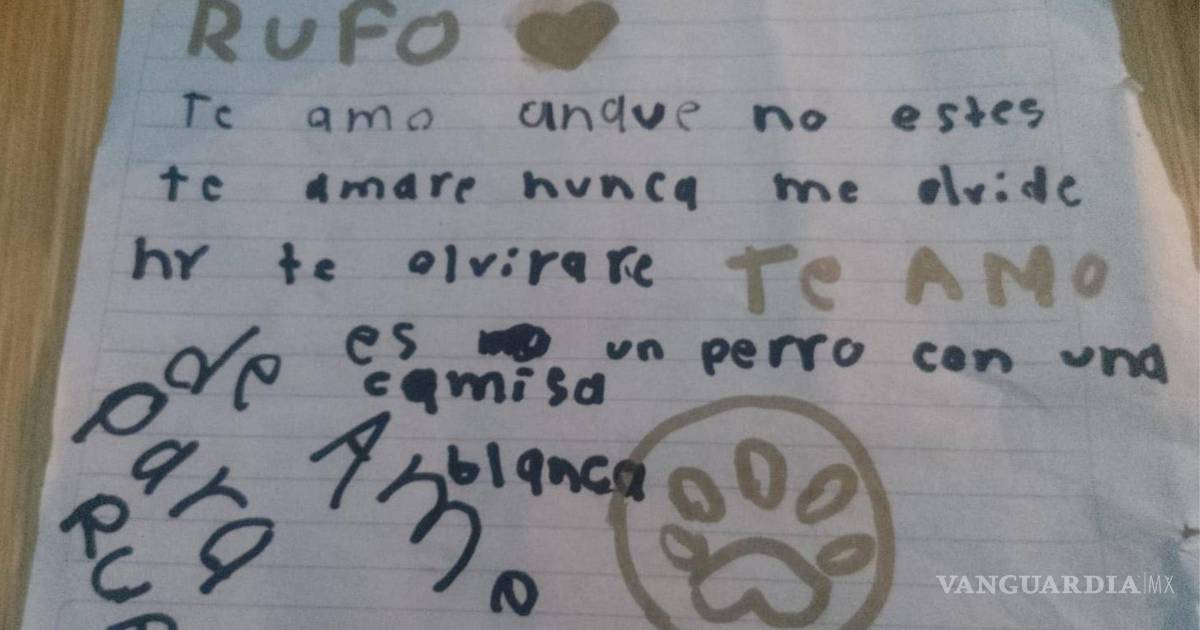 RUFO
Te amo anque no estes
te amare nunca me olvide
nr te olvirare TE AMO
es no un perro con una
camisa
blanca
de
Para
RUF
VANGUARDIA|MX